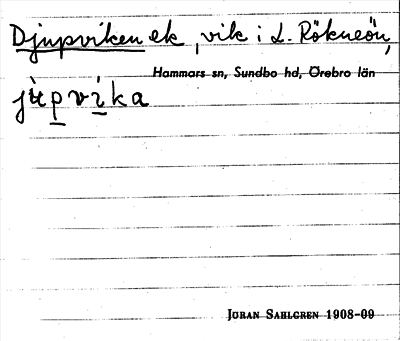 Djupviken ek, vik i L. Rökneön,
Hammars sn, Sundbo hd, Örebro län
jùpvìka
Jöran Sahlgren 1908-09